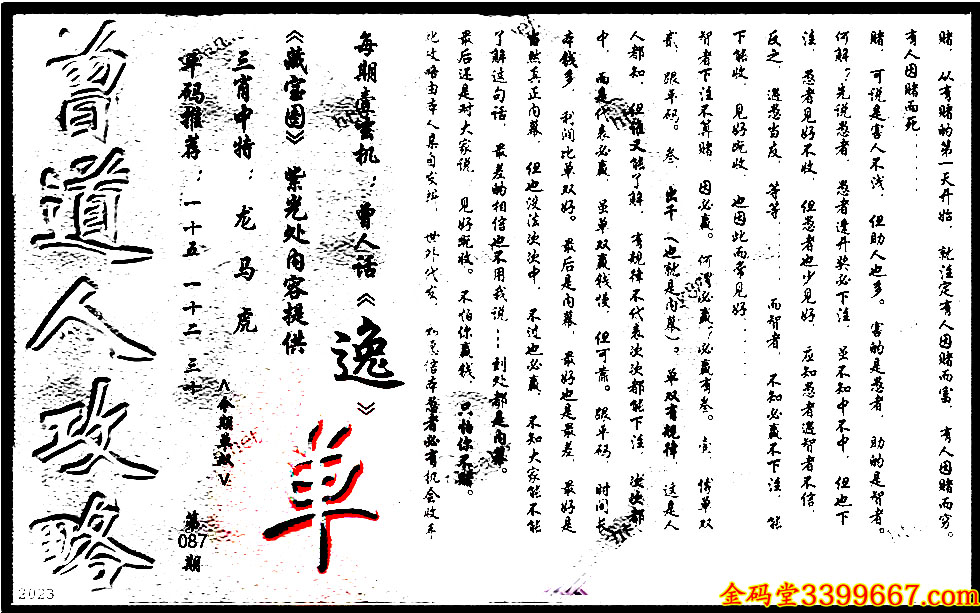 赌，从有赌的第一天开始，就注定有人因赌而富，有人因赌而穷。
有人因赌而死……
赌，可说是害人不浅，但助人也多。害的是愚者，助的是智者。
何解？先说愚者，愚者逢开奖必下注，虽不知中不中，但也下
注，愚者见好不收，但愚者也少见好，应知愚者遇智者不信，
反之，遇愚当皮，等等……而智者，不知必赢不下注，能
下能收，见好就收，也因此而常见好……
智者下注不算赌，因必赢。何谓必赢？必赢有叁。壹，傅单双
贰，跟单码。叁，出千（也就是内幕）。单双有规律，这是人
人都知，但谁又能了解，有规律不代表次次都能下注，次次都
中，而是代表必赢，虽单双赢钱慢，但可靠。跟单码，时间长
本钱多，利润比单双好。最后是内幕，最好也是最差，最好是
当然真正内幕，但也没法次次中，不过也必赢，不知大家能不能
了解这句话，最差的相信也不用我说……到处都是内幕。
最后还是对大家说，见好就收。不怕你赢钱，只怕你不赌。
此攻略由本人亲自发
每期赠玄机：曾人话《逸》
《藏宝图》紫光处内容提供
单
三肖中特：龙 马 虎
<今期单双>
单码推荐：一十五 一十二 三十
第087期
曾道人攻略
2023
金码堂3399667.com